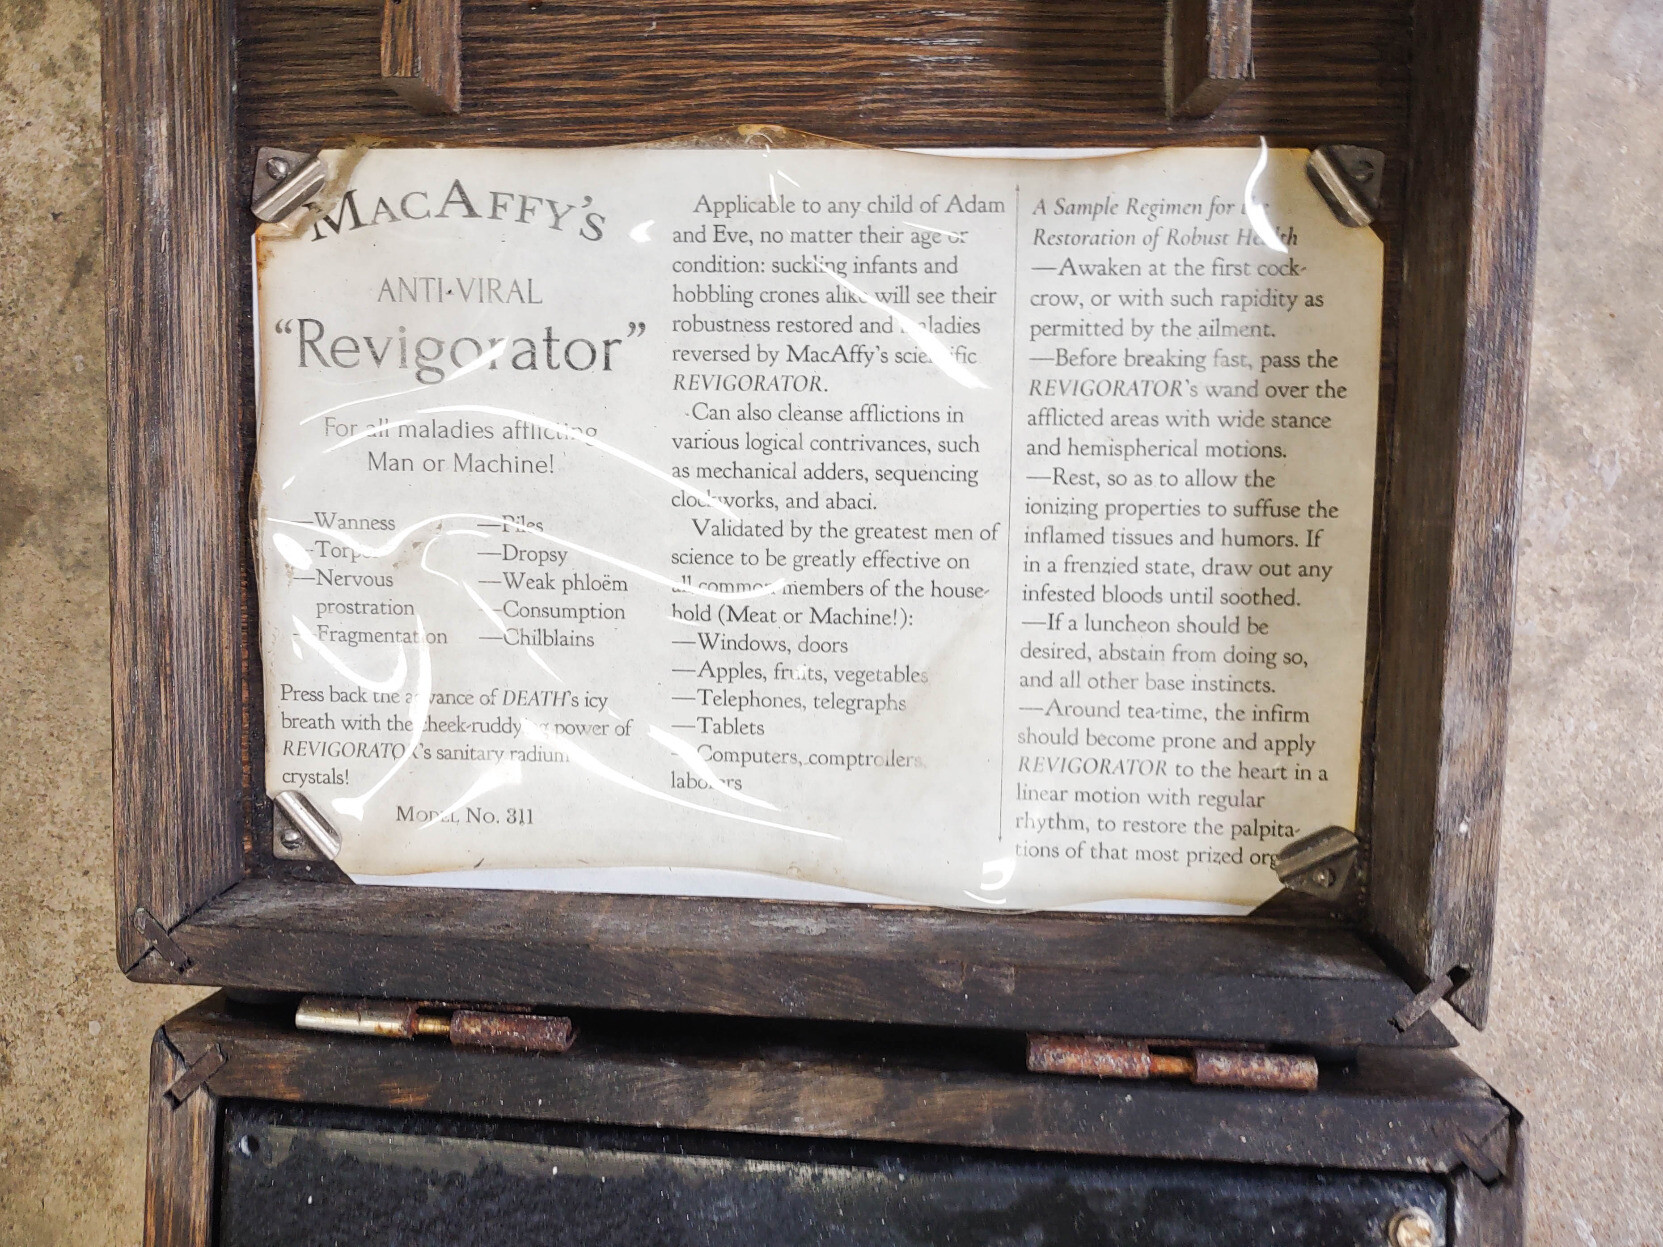 MACAFFY'S
ANTI-VIRAL
"Revigorator"
For all maladies afflicting
Man or Machine!
—Wanness
—Torpor
—Nervous
prostration
—Fragmentation
—Piles
—Dropsy
—Weak phloëm
—Consumption
—Chilblains
Press back the advance of DEATH's icy
breath with the cheek-ruddying power of
REVIGORATOR's sanitary radium
crystals!
MODEL NO. 311
Applicable to any child of Adam
and Eve, no matter their age or
condition: suckling infants and
hobbling crones alike will see their
robustness restored and maladies
reversed by MacAffy's scientific
REVIGORATOR.
Can also cleanse afflictions in
various logical contrivances, such
as mechanical adders, sequencing
clockworks, and abaci.
Validated by the greatest men of
science to be greatly effective on
all common members of the house-
hold (Meat or Machine!):
—Windows, doors
—Apples, fruits, vegetables
—Telephones, telegraphs
—Tablets
—Computers, comptrollers,
laborers
A Sample Regimen for the
Restoration of Robust Health
—Awaken at the first cock-
crow, or with such rapidity as
permitted by the ailment.
—Before breaking fast, pass the
REVIGORATOR's wand over the
afflicted areas with wide stance
and hemispherical motions.
—Rest, so as to allow the
ionizing properties to suffuse the
inflamed tissues and humors. If
in a frenzied state, draw out any
infested bloods until soothed.
—If a luncheon should be
desired, abstain from doing so,
and all other base instincts.
—Around tea-time, the infirm
should become prone and apply
REVIGORATOR to the heart in a
linear motion with regular
rhythm, to restore the palpita-
tions of that most prized